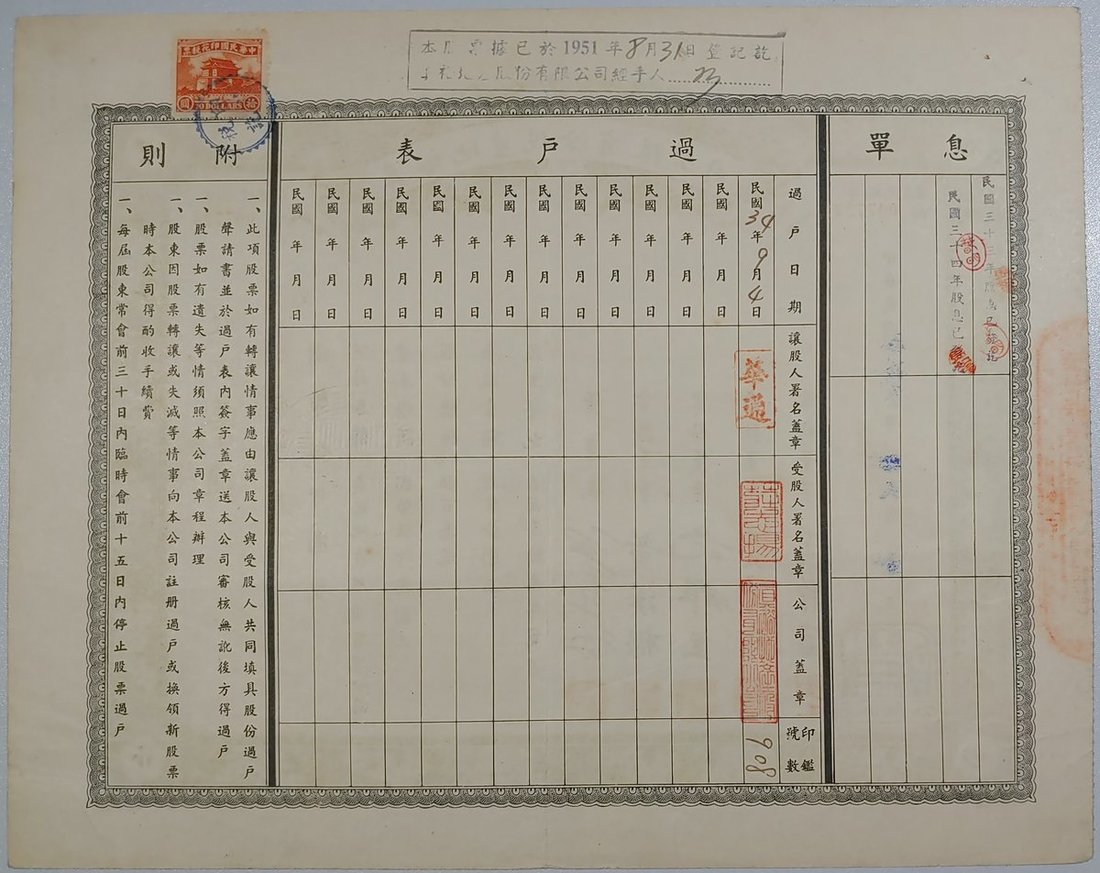 中華民國印花稅票
拾圓
20 DOLLARS
本股票據已於1951年8月31日登記訖
股份有限公司經手人
息單
民國三十三年股息已發訖
民國三十四年股息已發訖
過戶表
過戶日期
讓股人署名蓋章
受股人署名蓋章
公司蓋章
印鑑號數
民國34年9月4日
華通
908
民國 年 月 日
民國 年 月 日
民國 年 月 日
民國 年 月 日
民國 年 月 日
民國 年 月 日
民國 年 月 日
民國 年 月 日
民國 年 月 日
民國 年 月 日
民國 年 月 日
民國 年 月 日
民國 年 月 日
附則
一、此項股票如有轉讓情事應由讓股人與受股人共同填具股份過戶
聲請書並於過戶表內簽字蓋章送本公司審核無訛後方得過戶
一、股票如有遺失等情須照本公司章程辦理
一、股東因股票轉讓或失滅等情事向本公司註册過戶或換領新股票
時本公司得酌收手續費
一、每屆股東常會前三十日內臨時會前十五日內停止股票過戶